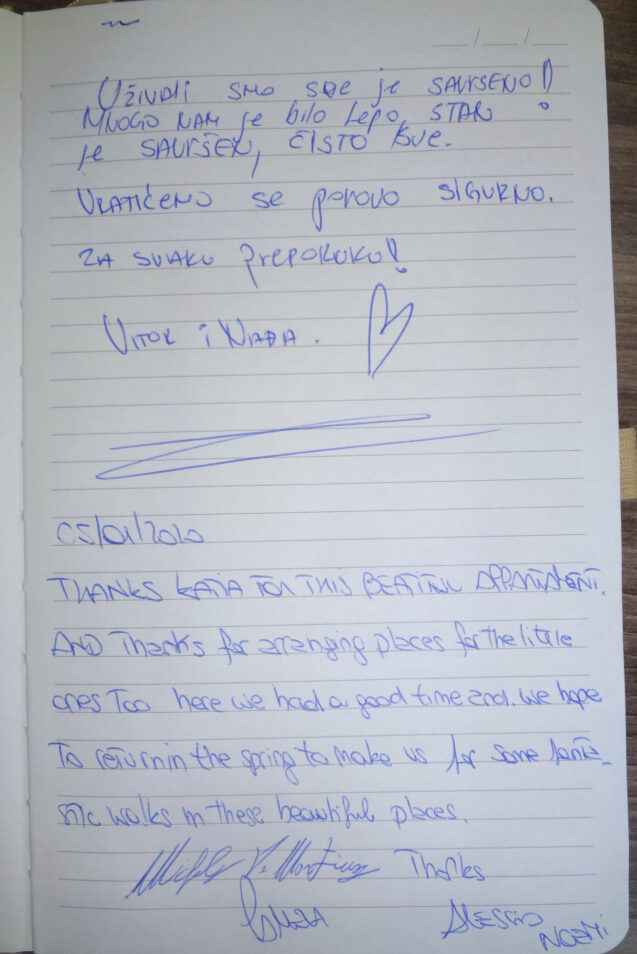 UŽIVALI SMO SVE je SAVRŠENO!
MNOGO NAM je bilo lepo, STAN
je SAVRŠEN, ČISTO SVE.
VRATIĆEMO se ponovo SIGURNO.
ZA SVAKU prEPORUKU!
VITOR i NAĐA.
05/01/2020
THANKS KATIA FOR THIS BEATIFUL APPARTAMENT.
AND Thanks for arranging places for the little
ones Too here we had a good time and. we hope
To return in the spring to make us for some fanta_
stic walks in these beautiful places.
Thanks
ALESSIO
NOEMI